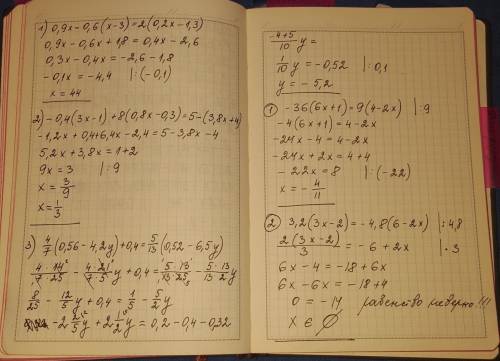 1) 0,9x - 0,6(x-3) = 2(0,2x - 1,3)
0,9x - 0,6x + 1,8 = 0,4x - 2,6
0,3x - 0,4x = -2,6 - 1,8
-0,1x = -4,4 |:(-0,1)
x = 44
2) -0,4(3x-1) + 8(0,8x-0,3) = 5-(3,8x+4)
-1,2x + 0,4 + 6,4x - 2,4 = 5 - 3,8x - 4
5,2x + 3,8x = 1+2
9x = 3 |:9
x = 3/9
x = 1/3
3) 4/7 (0,56 - 4,2y) + 0,4 = 5/13 (0,52 - 6,5y)
4·14²/7·25 - 4·21³/7·5 y + 0,4 = 5·13/13·25 - 5·13/13·2 y
8/25 - 12/5 y + 0,4 = 1/5 - 5/2 y
-2 2/5 y + 2 1/2 y = 0,2 - 0,4 - 0,32
-4+5/10 y =
1/10 y = -0,52 |:0,1
y = -5,2
① -36(6x+1) = 9(4-2x) |:9
-4(6x+1) = 4-2x
-24x - 4 = 4-2x
-24x + 2x = 4+4
-22x = 8 |:(-22)
x = - 4/11
② 3,2(3x-2) = -4,8(6-2x) |:4,8
2(3x-2)/3 = -6 + 2x |·3
6x - 4 = -18 + 6x
6x - 6x = -18 + 4
0 = -14 равенство неверно!!!
x ∈ ∅